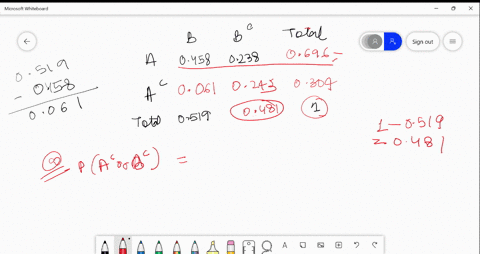 Microsoft Whiteboard
Sign out
B B^c Total
A 0.458 0.238 0.696
A^c 0.061 0.243 0.304
Total 0.519 0.481 1
0.519
- 0.458
0.061
1 - 0.519
= 0.481
P(A^c or B^c) =